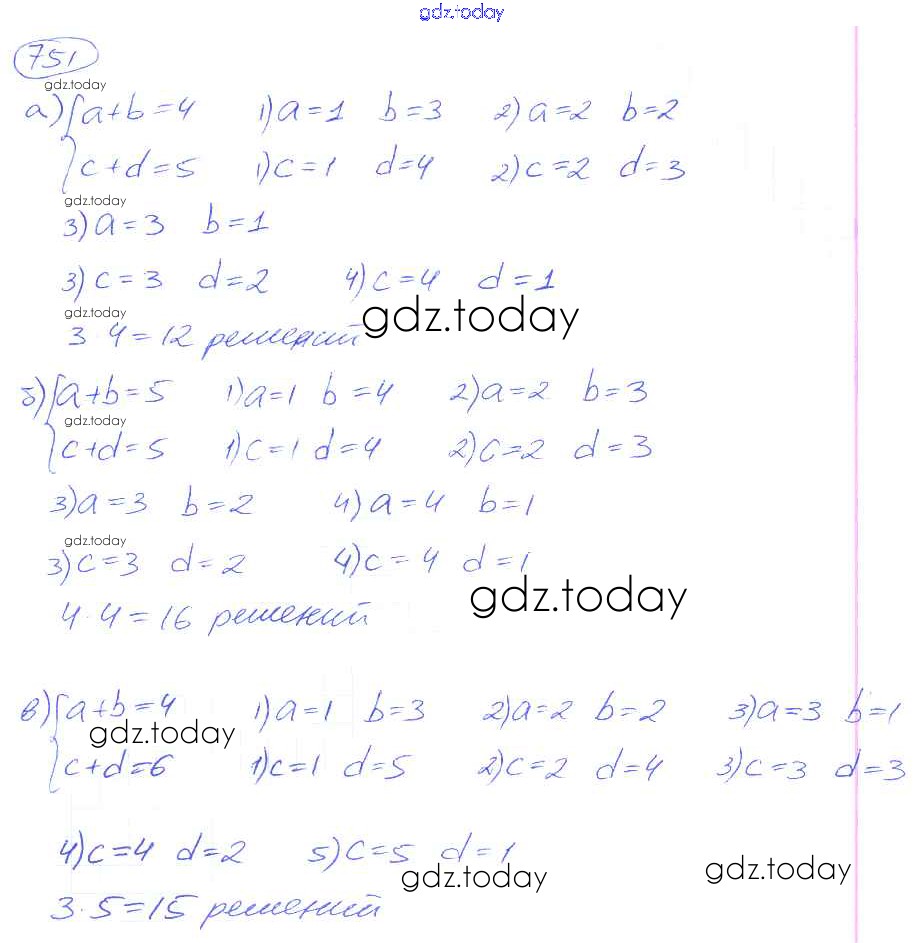 gdz.today
751
gdz.today
а) { a+b=4 1) a=1 b=3 2) a=2 b=2
c+d=5 1) c=1 d=4 2) c=2 d=3
gdz.today
3) a=3 b=1
3) c=3 d=2 4) c=4 d=1
gdz.today
gdz.today
3 4=12 решений
б) { a+b=5 1) a=1 b=4 2) a=2 b=3
gdz.today
c+d=5 1) c=1 d=4 2) c=2 d=3
3) a=3 b=2 4) a=4 b=1
gdz.today
3) c=3 d=2 4) c=4 d=1
gdz.today
4·4=16 решений
в) { a+b=4 1) a=1 b=3 2) a=2 b=2 3) a=3 b=1
gdz.today
c+d=6 1) c=1 d=5 2) c=2 d=4 3) c=3 d=3
4) c=4 d=2 5) c=5 d=1
gdz.today gdz.today
3·5=15 решений